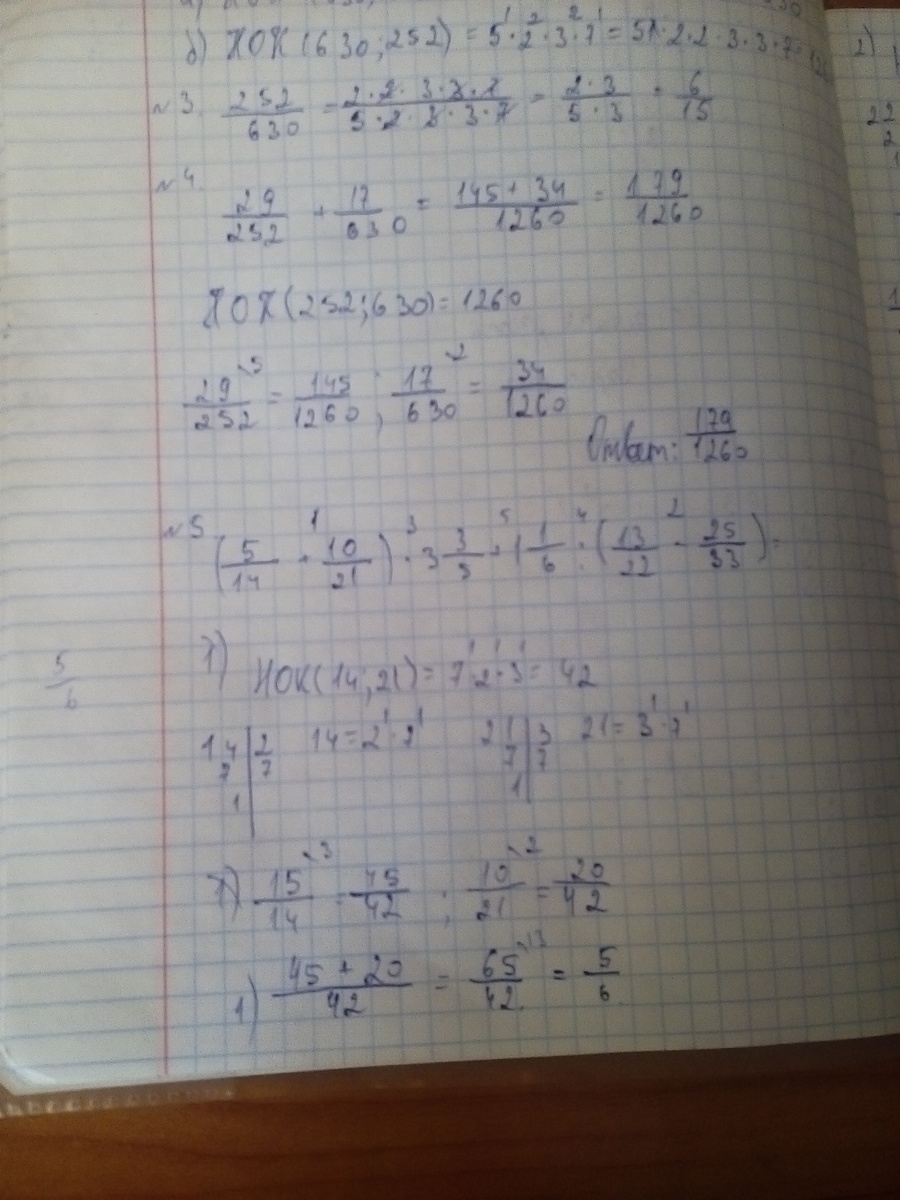 б) НОК (630; 252) = 5¹·2²·3²·7¹ = 5·2·2·3·3·7 =
№3. 252/630 = 2·2·3·3·7/5·2·3·3·7 = 2·3/5·3 = 6/15
№4. 29/252 + 17/630 = 145+34/1260 = 179/1260
НОК (252; 630) = 1260
29/252 ⁵ = 145/1260 ; 17/630 ² = 34/1260
Ответ: 179/1260
№5 (5/14 + 10/21) · 3 3/5 + 1 1/6 : (13/22 - 25/33) =
5/6
1) НОК (14; 21) = 7¹·2¹·3¹ = 42
14 | 2 14 = 2¹·7¹ 21 | 3 21 = 3¹·7¹
7 | 7 7 | 7
1 | 1 |
15/14 ³ = 45/42 ; 10/21 ² = 20/42
1) 45 + 20/42 = 65/42 ¹³ = 5/6
2)
22
2
1
1